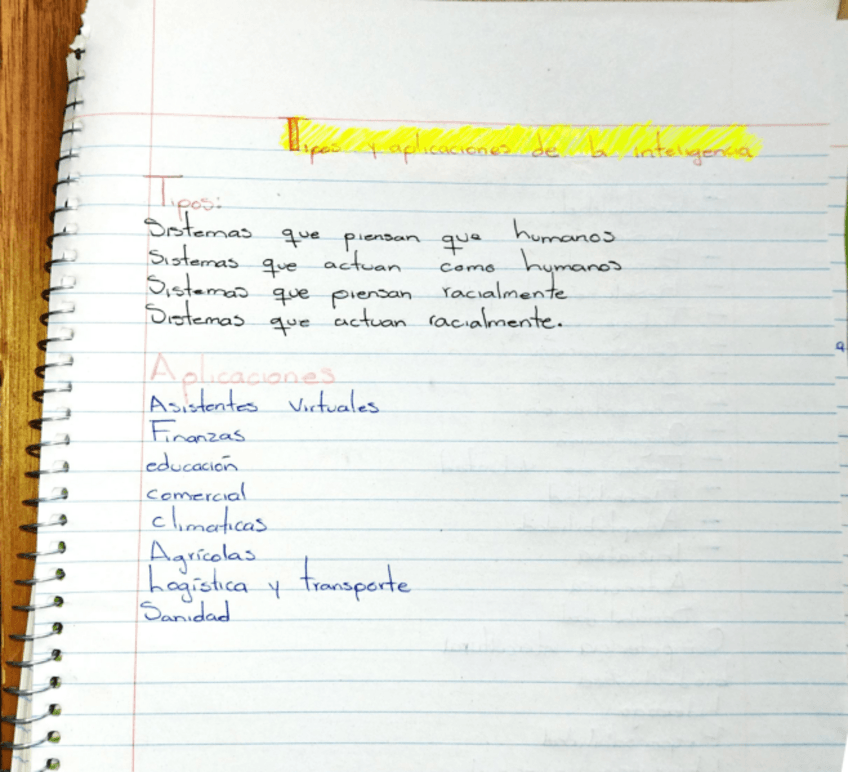 Tipos y aplicaciones de la inteligencia
Tipos:
Sistemas que piensan que humanos
Sistemas que actuan como humanos
Sistemas que piensan racialmente
Sistemas que actuan racialmente.
Aplicaciones
Asistentes virtuales
Finanzas
educación
comercial
climaticas
Agrícolas
Logística y transporte
Sanidad